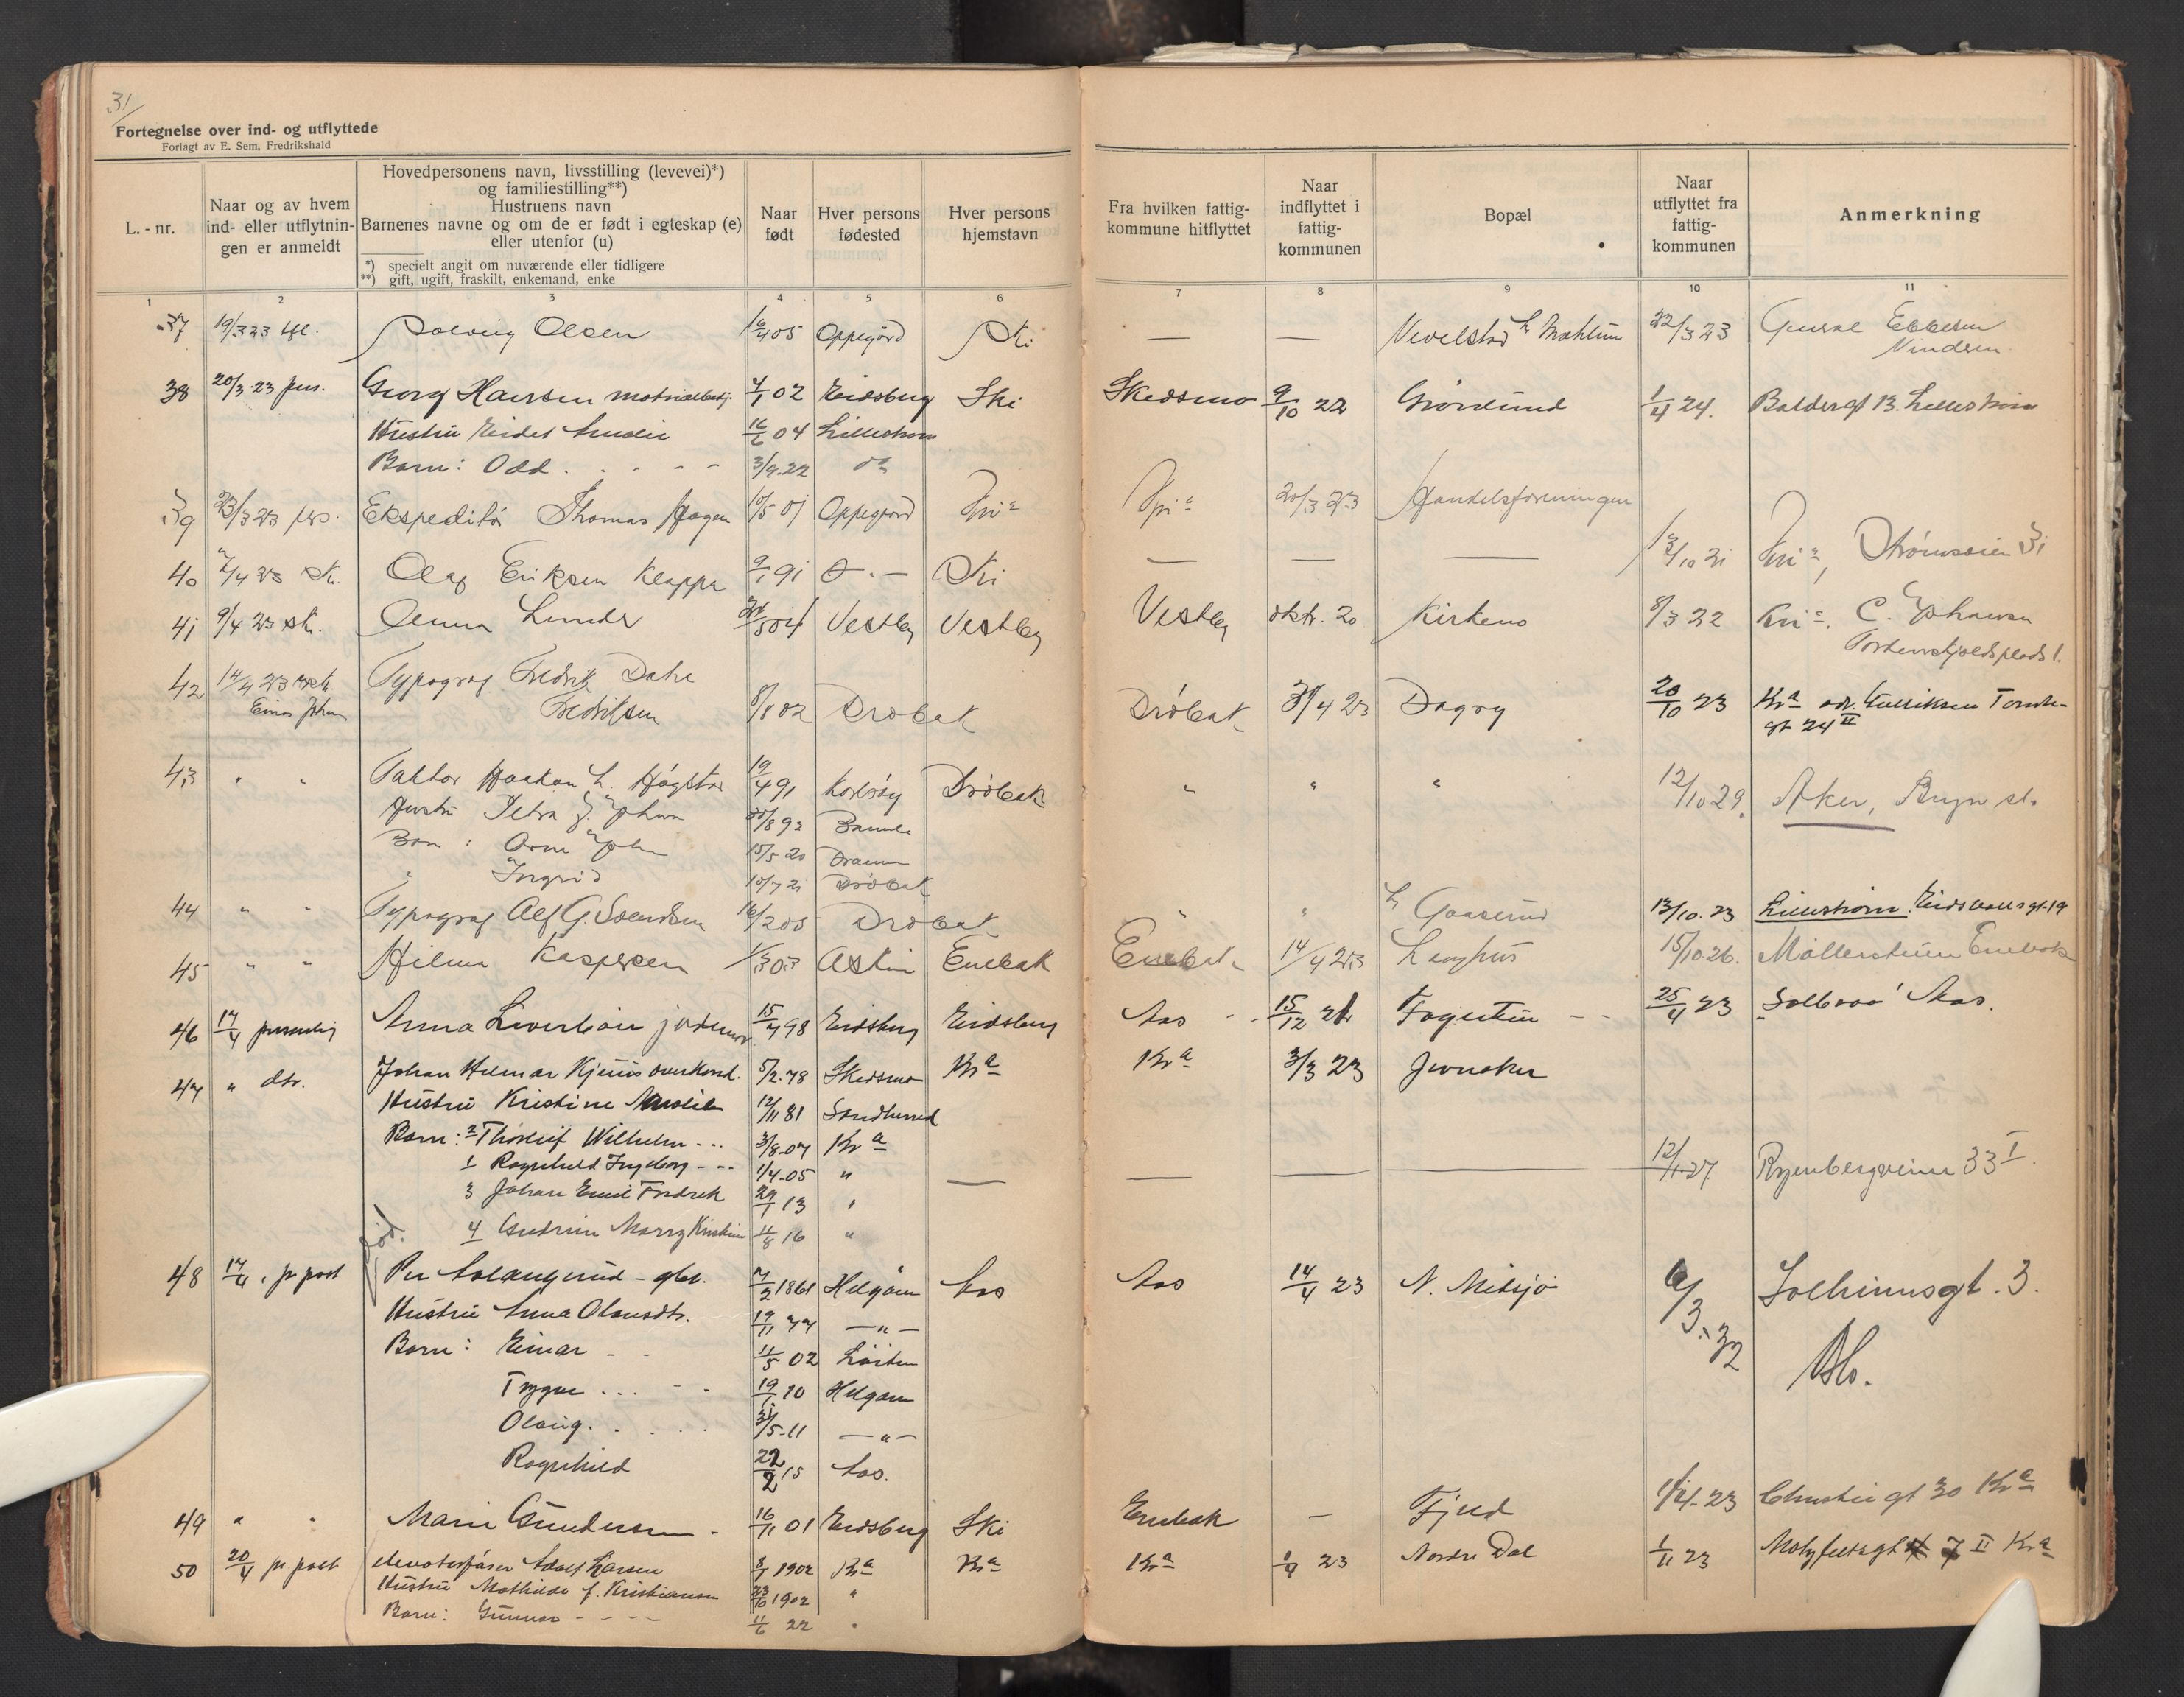 31/
Fortegnelse over ind- og utflyttede
Forlagt av E. Sem, Fredrikshald
L.-nr.
Naar og av hvem ind- eller utflytningen er anmeldt
Hovedpersonens navn, livsstilling (levevei)*) og familiestilling**)
Hustruens navn
Barnenes navne og om de er født i egteskap (e) eller utenfor (u)
*) specielt angit om nuværende eller tidligere
**) gift, ugift, fraskilt, enkemand, enke
Naar født
Hver persons fødested
Hver persons hjemstavn
Fra hvilken fattigkommune hitflyttet
Naar indflyttet i fattigkommunen
Bopæl
Naar utflyttet fra fattigkommunen
Anmerkning
1 2 3 4 5 6 7 8 9 10 11
37 19/3 23 Solveig Olsen 16/4 05 Oppegård Ski — — Vevelstad 22/3 23
38 20/3-23 pers. Georg Hansen 4/1 02 Eidsberg Ski Skedsmo 9/10 22 Grønlund 1/4 24. Baldersgt 13. Lillestrøm
Hustru 16/6 04 Lillestrøm
Barn: Odd 3/9-22
39 23/3 23 pers. Ekspeditør Thomas Hagen 10/5 01 Oppegård Kria Kria 20/3 23 Handelsforeningen
40 7/4 23 Olaf Eriksen Klappa 9/1 91 Ski — — — Kria, Strømsveien 31
41 9/4 23 Lunder 04 Vestby Vestby Vestby oktr. 20 8/3 22 Kria. C. Johansen
Tordenskjoldsplads 1.
42 14/4 23 Typograf Fredrik Dahl
Fredriksen 8/8 02 Drøbak Drøbak 4 23 Dagny 20/10 23 Kra
gt 24 II
43 " " Faktor Haakon L. Høgstad 19/4 91 Drøbak " " " 12/10 29. Aker, Bryn st.
Hustru Petra J. Johnsen /8 92 Bamle
Barn: Arne John 15/5 20 Drammen
" Ingrid 10/7 21 Drøbak
44 " " Typograf Alf G. Svendsen 16/2 05 Drøbak " " Gaaserud 13/10.23 Lillestrøm. Eidsvollsgt. 19
45 " " Hilma Kaspersen 1/3 03 Askim Enebak Enebak 14/4 23 Langhus 15/10 26. Enebak
46 17/4 personlig Anna jordmor 15/4 98 Eidsberg Eidsberg Aas 15/12 21 25/4 23 Solbraa Aas.
47 " dto. Johan Hilmar Kjenis overkond. 5/2-78 Skedsmo Kra Kra 3/3 23
Hustru Kristine 12/11 81
Barn: 2 Thorleif Wilhelm 3/8-07 Kra
1 Ragnhild Ingeborg 1/4-05 " — — — — 12/1-27. Ryenbergveien 33 I.
3 Johan Emil Fredrik 29/1 13 "
4 Gudrun Marry Kristine 11/8 16 "
48 17/4 pr post Per gbr. 7/2 1861 Helgøen Aas Aas 14/4 23 N. Midsjø 6/3.32 Solheimsgt. 3.
Hustru Anna Olausdtr. 19/11 77 — " —
Oslo.
Barn: Einar 11/5 02 Løiten
Trygve 19/1 10 Helgøen
Olaug 31/5-11 — " —
Ragnhild 22/2 15 Aas.
49 " " Marie Gundersen 16/11 01 Eidsberg Ski Enebak — Fjeld 23 Christies gt 30 Kra
50 20/4 pr post Adolf Larsen 8/1 1902 Kra Kra Kra 23 Nordre Dal 1/11 23 II Kra
Hustru Mathilde f. Kristiansen 23/10 1902 "
Barn: Gunnar 11/6 22 "